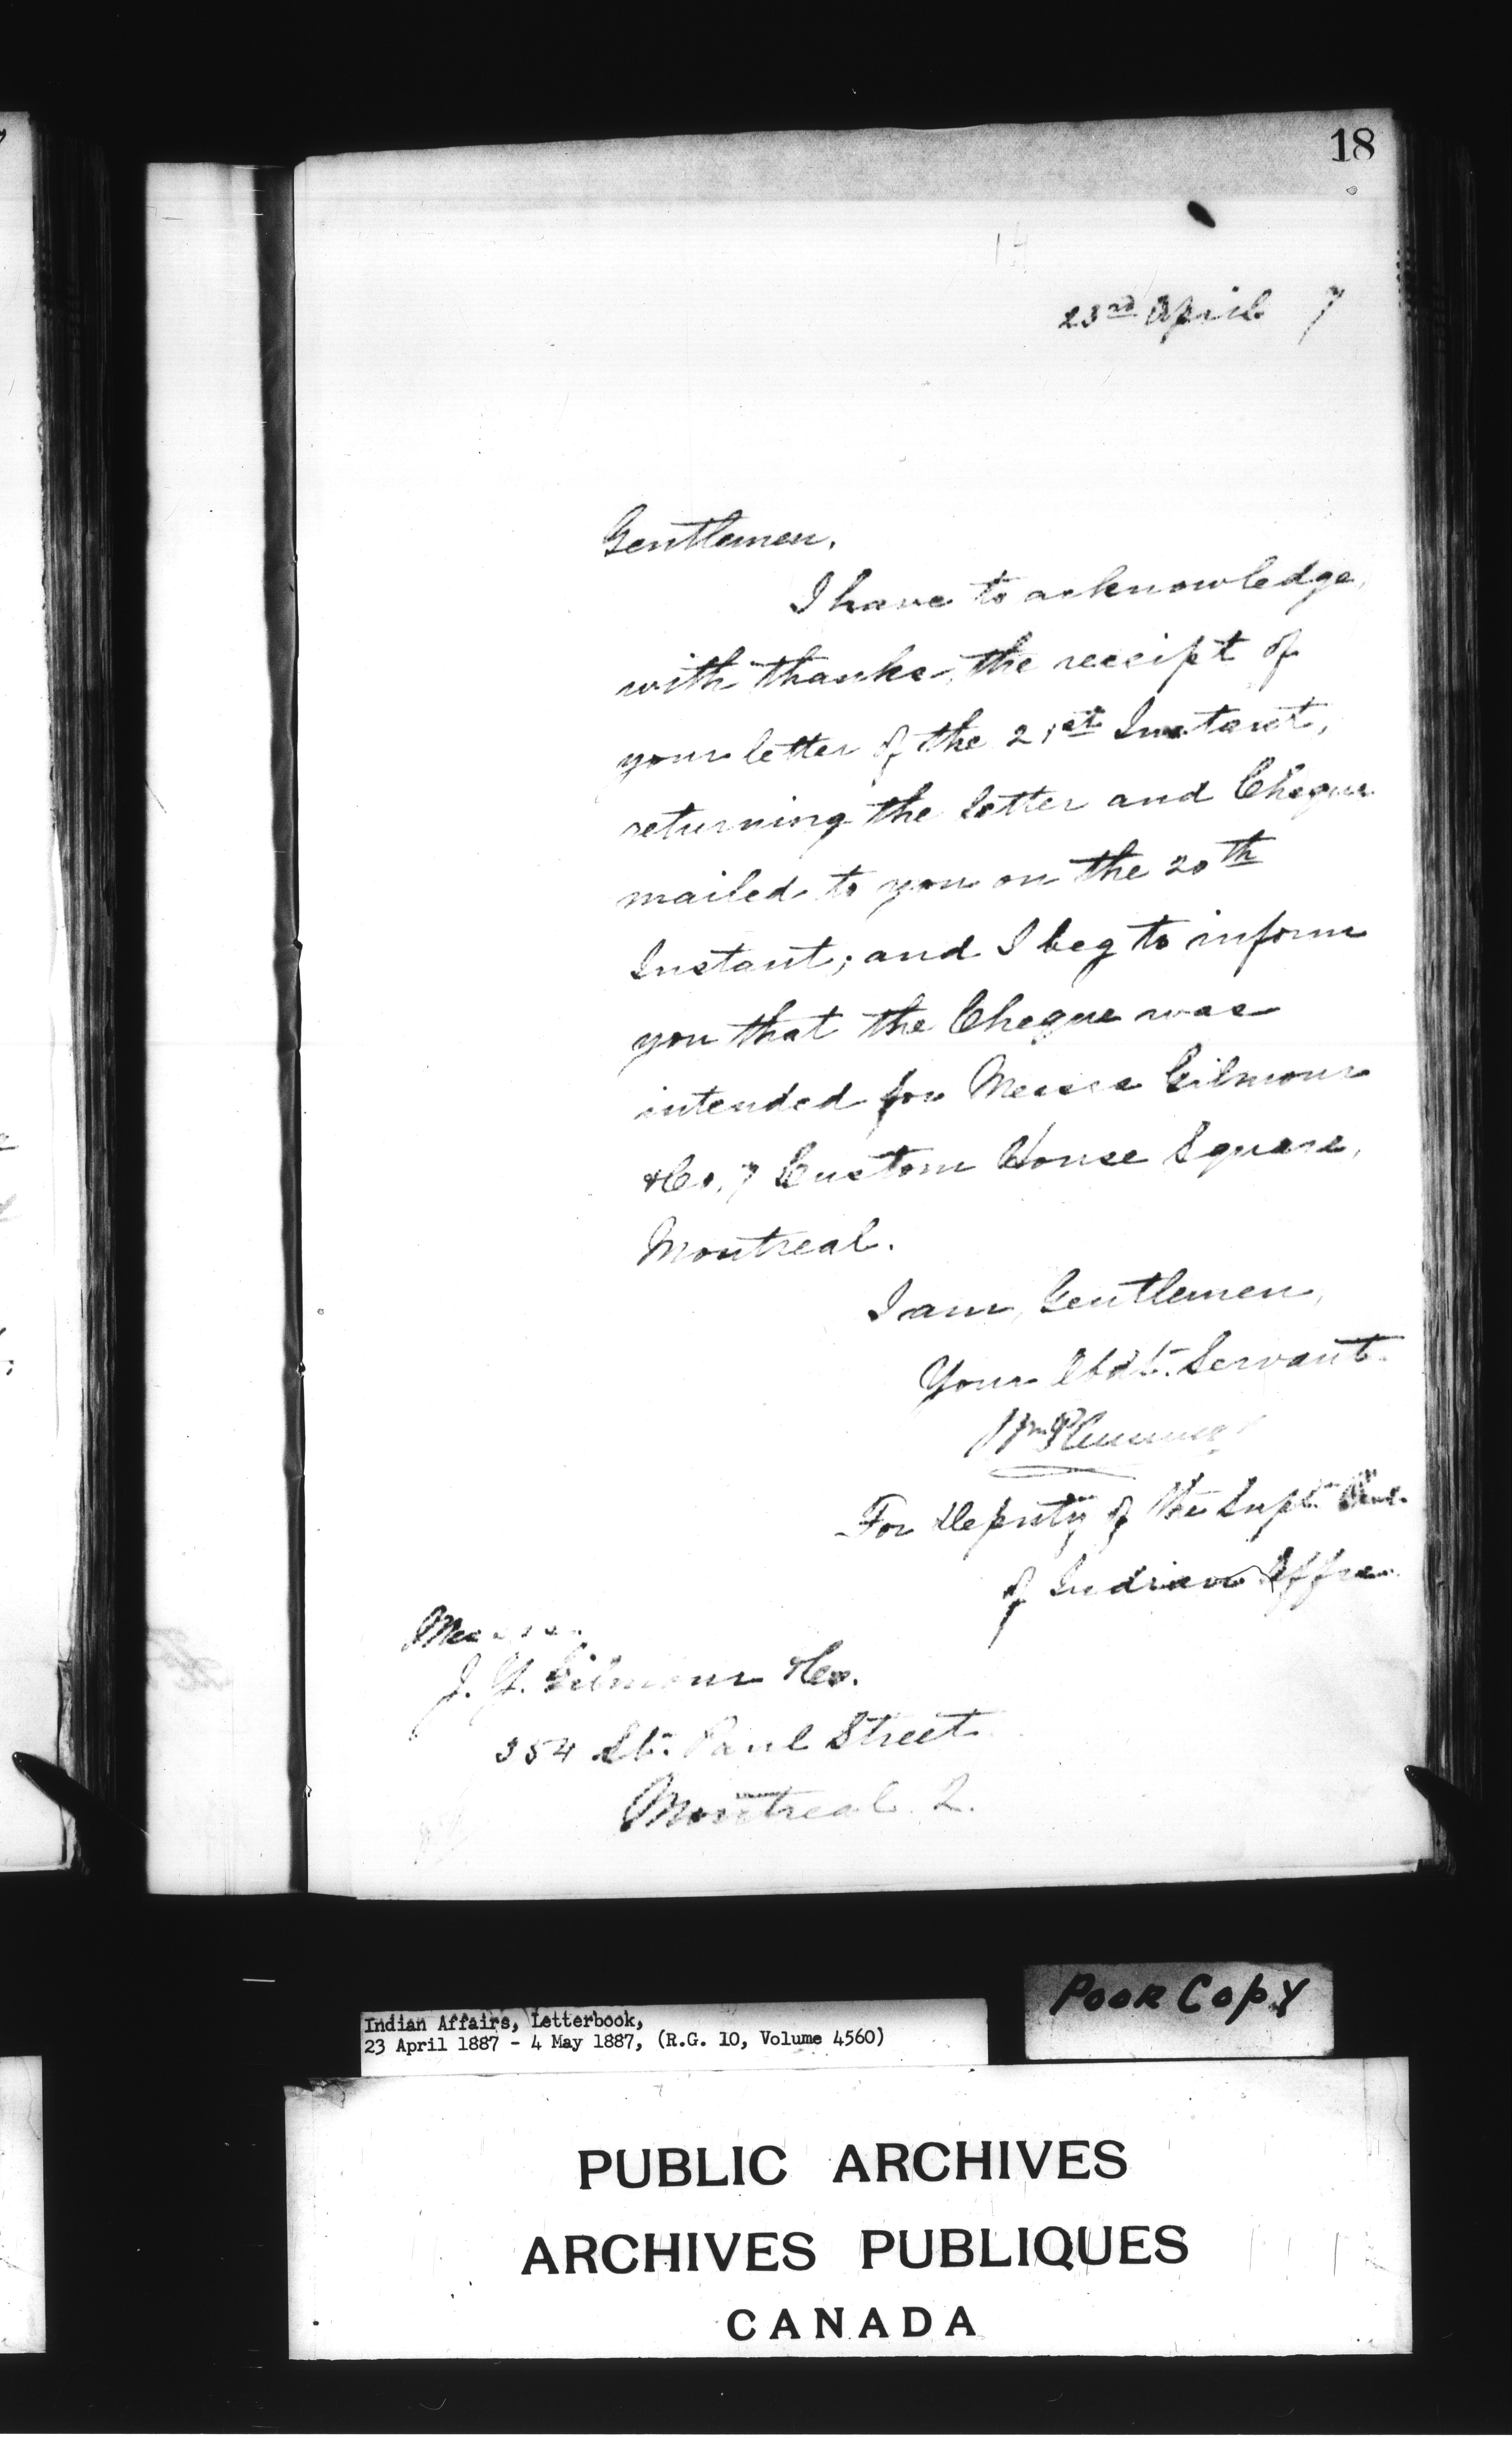 18
14
23rd April 7
Gentlemen,
I have to acknowledge,
with thanks, the receipt of
your letter of the 21st Instant,
returning the letter and Cheque
mailed to you on the 20th
Instant; and I beg to inform
you that the Cheque was
intended for Messrs Gilmour
& Co. 7 Custom House Square,
Montreal.
I am, Gentlemen,
Your Obdt. Servant.
Wm Plummer
For Deputy of the Supt. Genl.
of Indian Affrs.
Messrs.
J. Y. Gilmour & Co.
354 St. Paul Street
Montreal. Q.
POOR COPY
Indian Affairs, Letterbook,
23 April 1887 - 4 May 1887, (R.G. 10, Volume 4560)
PUBLIC ARCHIVES
ARCHIVES PUBLIQUES
CANADA